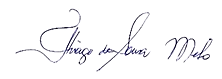 Thiago de Souza Melo